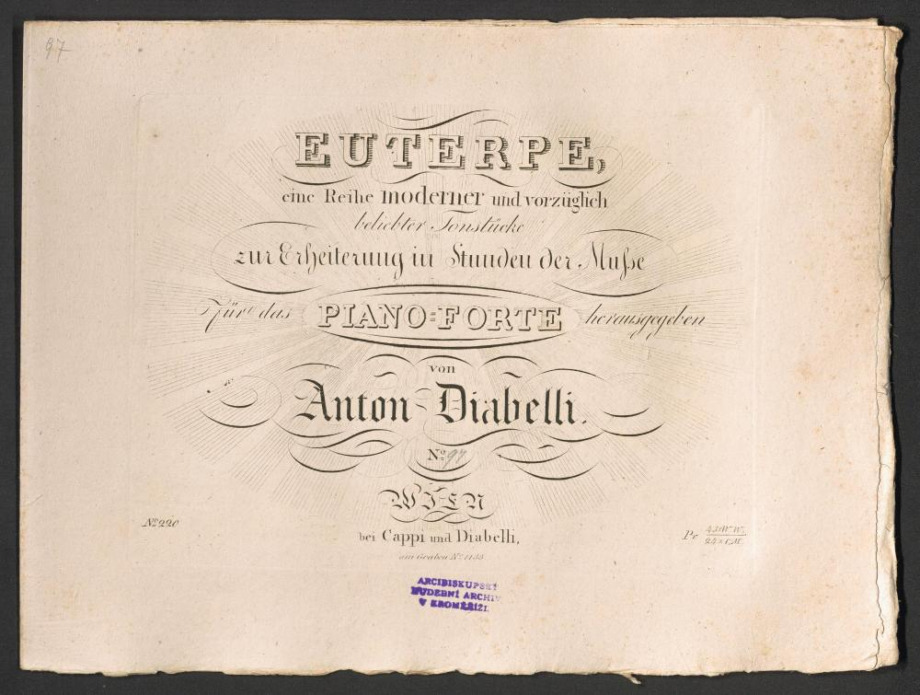 97
EUTERPE,
eine Reihe moderner und vorzüglich
beliebter Tonstücke
zur Erheiterung in Stunden der Muſse
Für das PIANO=FORTE herausgegeben
von
Anton Diabelli.
No. 97
WIEN
No. 220
bei Cappi und Diabelli,
am Graben No. 1133
Pr.
ARCIBISKUPSKÝ
HUDEBNÍ ARCHIV
V KROMĚŘÍŽI.